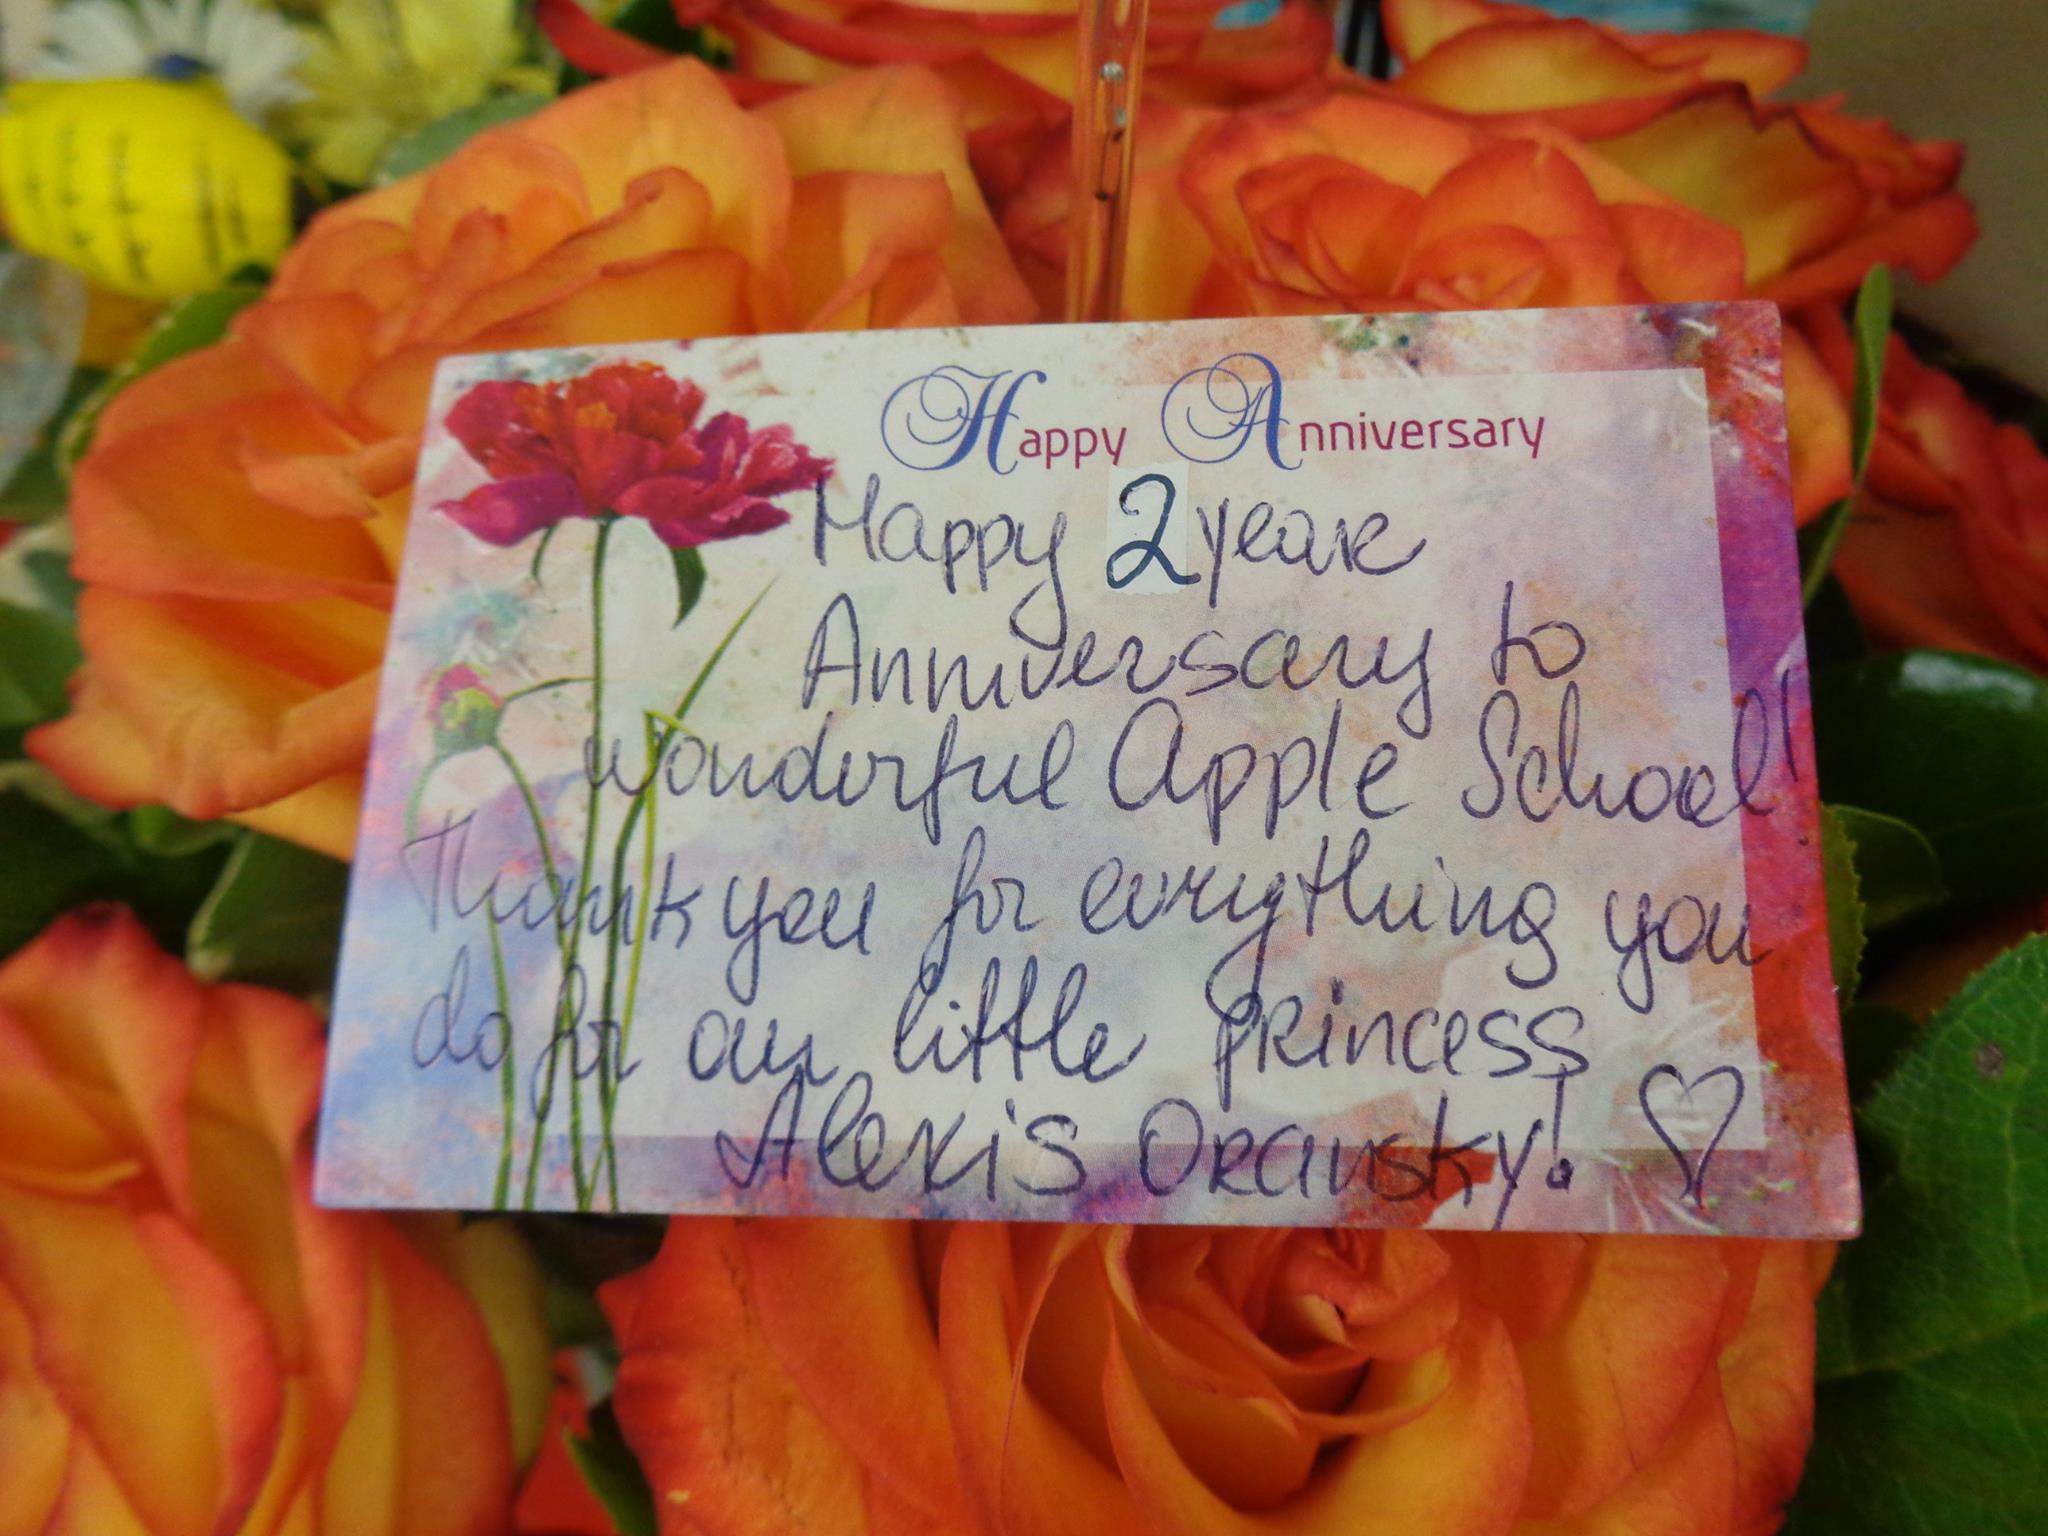 Happy Anniversary
Happy 2 year
Anniversary to
wonderful Apple School!
Thank you for everything you
do for our little princess
Alexis Oransky! ♡